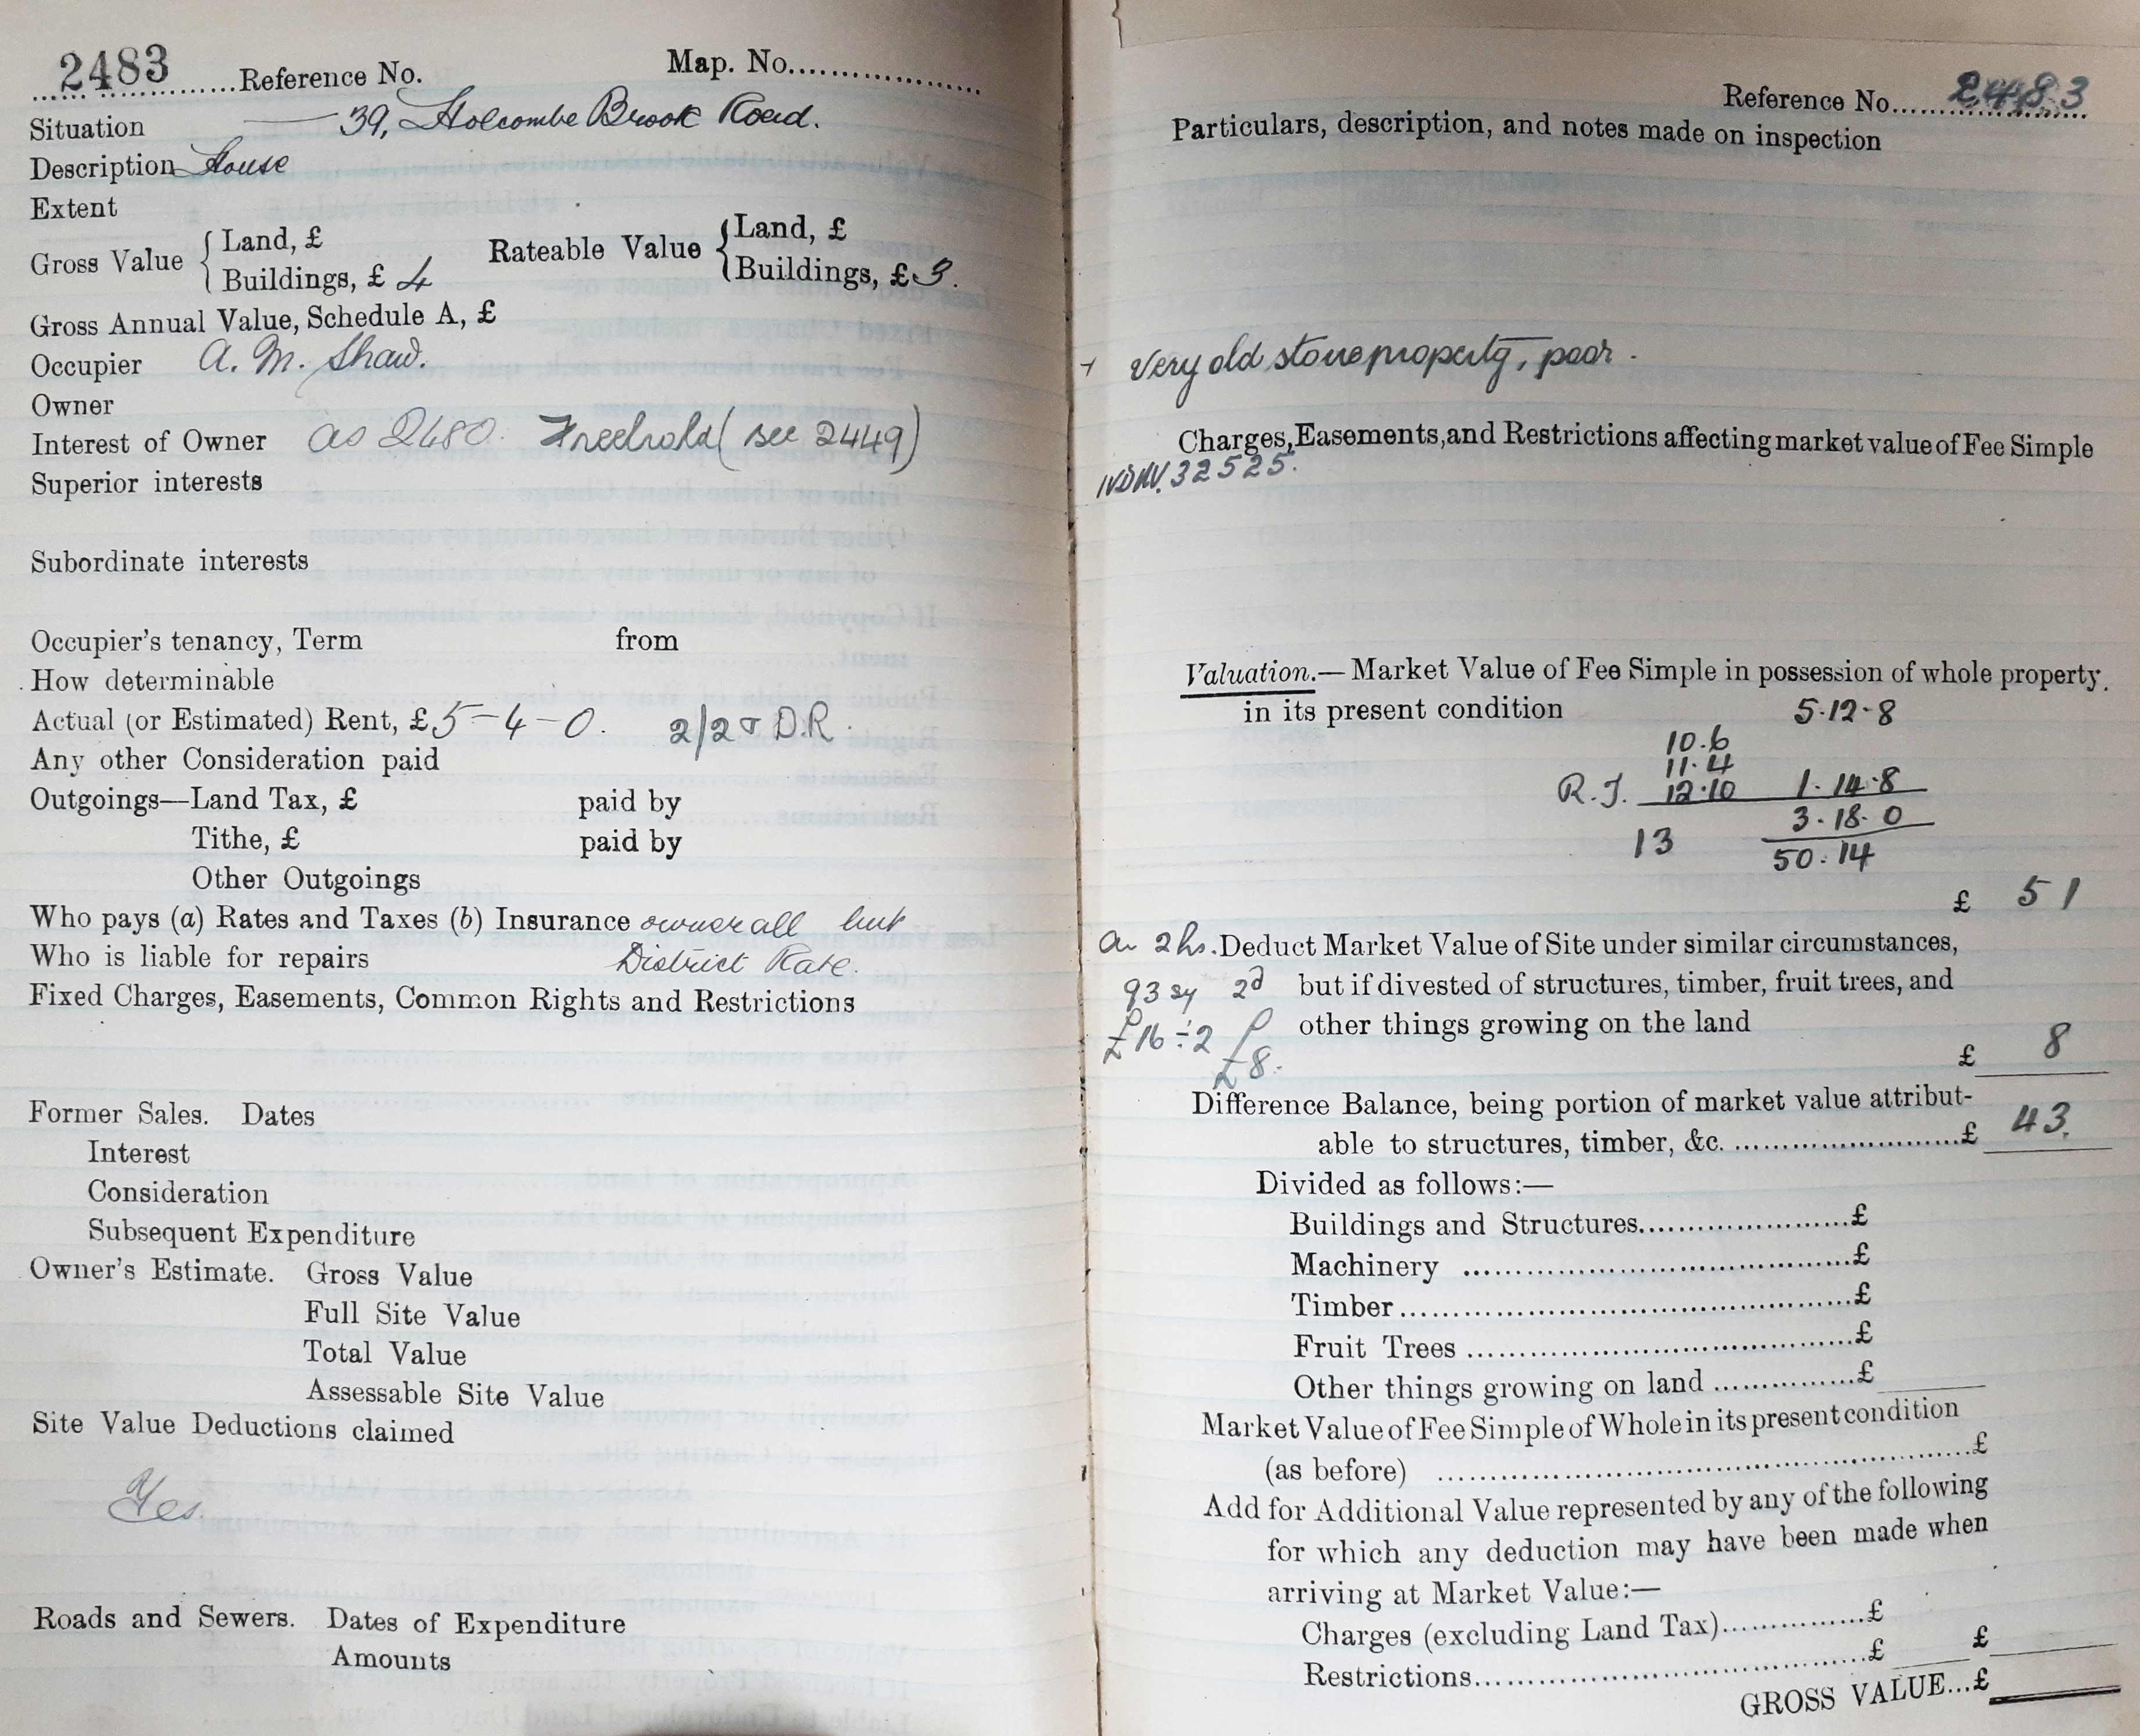 2483 Reference No. Map. No.
Situation — 39, Holcombe Brook Road.
Description House
Extent
Gross Value { Land, £ Rateable Value { Land, £
Buildings, £ 4 Buildings, £ 3.
Gross Annual Value, Schedule A, £
Occupier A. M. Shaw.
Owner
Interest of Owner as 2480. Freehold (see 2449)
Superior interests
Subordinate interests
Occupier's tenancy, Term from
How determinable
Actual (or Estimated) Rent, £ 5-4-0. 2/2 & D.R.
Any other Consideration paid
Outgoings—Land Tax, £ paid by
Tithe, £ paid by
Other Outgoings
Who pays (a) Rates and Taxes (b) Insurance owner all but
Who is liable for repairs District Rate.
Fixed Charges, Easements, Common Rights and Restrictions
Former Sales. Dates
Interest
Consideration
Subsequent Expenditure
Owner's Estimate. Gross Value
Full Site Value
Total Value
Assessable Site Value
Site Value Deductions claimed
Yes.
Roads and Sewers. Dates of Expenditure
Amounts
Reference No. 2483
Particulars, description, and notes made on inspection
Very old stone property, poor.
Charges, Easements, and Restrictions affecting market value of Fee Simple
32525.
Valuation.— Market Value of Fee Simple in possession of whole property.
in its present condition 5.12.8
10.6
11.4
R.I. 12.10 1.14.8
3.18.0
13 50.14
£ 51
2 hs. Deduct Market Value of Site under similar circumstances,
93 sy 2d but if divested of structures, timber, fruit trees, and
£16 ÷ 2 other things growing on the land
£8. £ 8
Difference Balance, being portion of market value attribut-
able to structures, timber, &c. £ 43.
Divided as follows:—
Buildings and Structures £
Machinery £
Timber £
Fruit Trees £
Other things growing on land £
Market Value of Fee Simple of Whole in its present condition
(as before) £
Add for Additional Value represented by any of the following
for which any deduction may have been made when
arriving at Market Value:—
Charges (excluding Land Tax) £
Restrictions £ £
GROSS VALUE...£